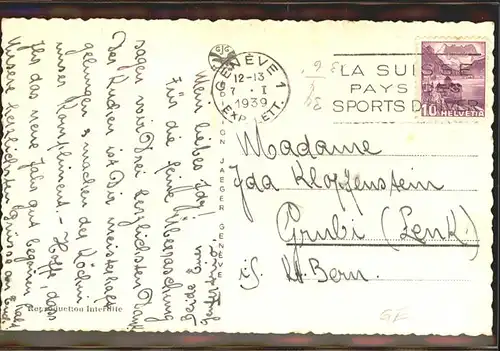 Mein liebes Idy!
Für die feine Überraschung
sagen wir Drei herzlichsten Dank
Der Kuchen ist Dir meisterhaft
gelungen & machen der Köchin
unser Kompliment – Hoffe, dass
Ihr das neue Jahr gut begonnen
Unsere herzlichsten Grüsse an Euch
Beide
GENÈVE 1
12-13
7. I
1939
EXP. LETT.
LA SUISSE
PAYS DES
SPORTS D'HIVER
10 HELVETIA
JAEGER GENÈVE
Madame
Ida Klopfenstein
Grubi (Lenk)
i/S. Kt. Bern.
Reproduction Interdite